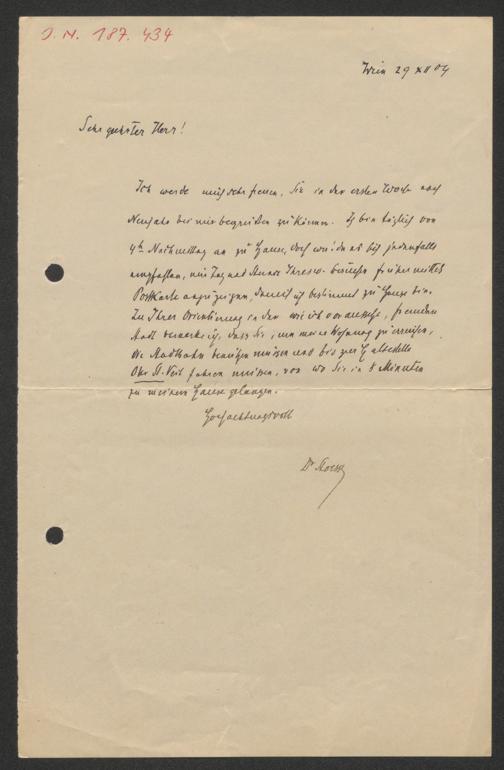 J. N. 187. 434
Wien 29 XII 04
Sehr geehrter Herr!
Ich werde mich sehr freuen, Sie in der ersten Woche nach
Neujahr bei mir begrüßen zu können. Ich bin täglich von
4h Nachmittag an zu Hause, doch würde es sich jedenfalls
empfehlen, mir Tag und Stunde Ihres besuchs früher mittels
Postkarte anzuzeigen, damit ich bestimmt zu Hause bin.
Zu Ihrer Orientierung in der wie ich voraussetze, fremden
Stadt bemerke ich, dass Sie, um meine Wohnung zu erreichen,
die Stadtbahn benützen müssen und bis zur Haltestelle
Ober St. Veit fahren müssen, von wo Sie in 8 Minuten
zu meinem Hause gelangen.
Hochachtungsvoll
Dr Stoessl